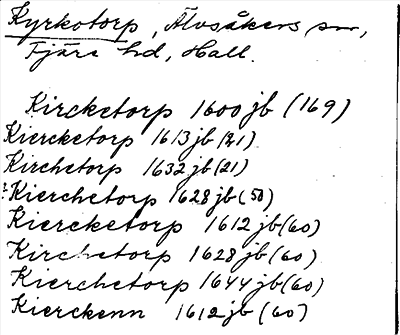 Kyrkotorp, Älvsåkers sn,
Fjäre hd, Hall.
Kircketorp 1600 jb (169)
Kiercketorp 1613 jb (21)
Kirchetorp 1632 jb (21)
? Kierchetorp 1628 jb (50)
Kiercketorp 1612 jb (60)
Kirchetorp 1628 jb (60)
Kierchetorp 1644 jb (60)
Kierckenn 1612 jb (60)